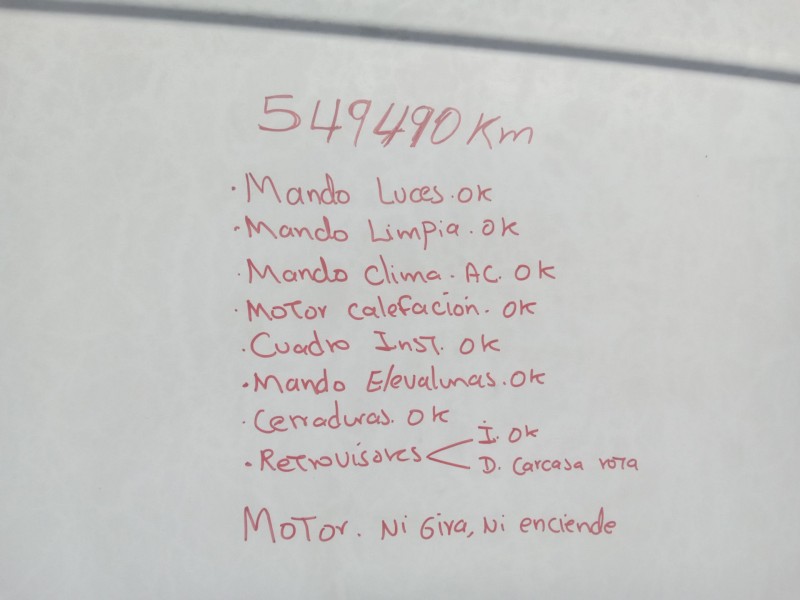 549490 Km
· Mando Luces. OK
· Mando Limpia. OK
· Mando Clima. AC. OK
· Motor calefación. OK
· Cuadro Inst. OK
· Mando Elevalunas. OK
· Cerraduras. OK
· Retrovisores < I. OK
D. Carcasa rota
Motor. Ni Gira, Ni enciende